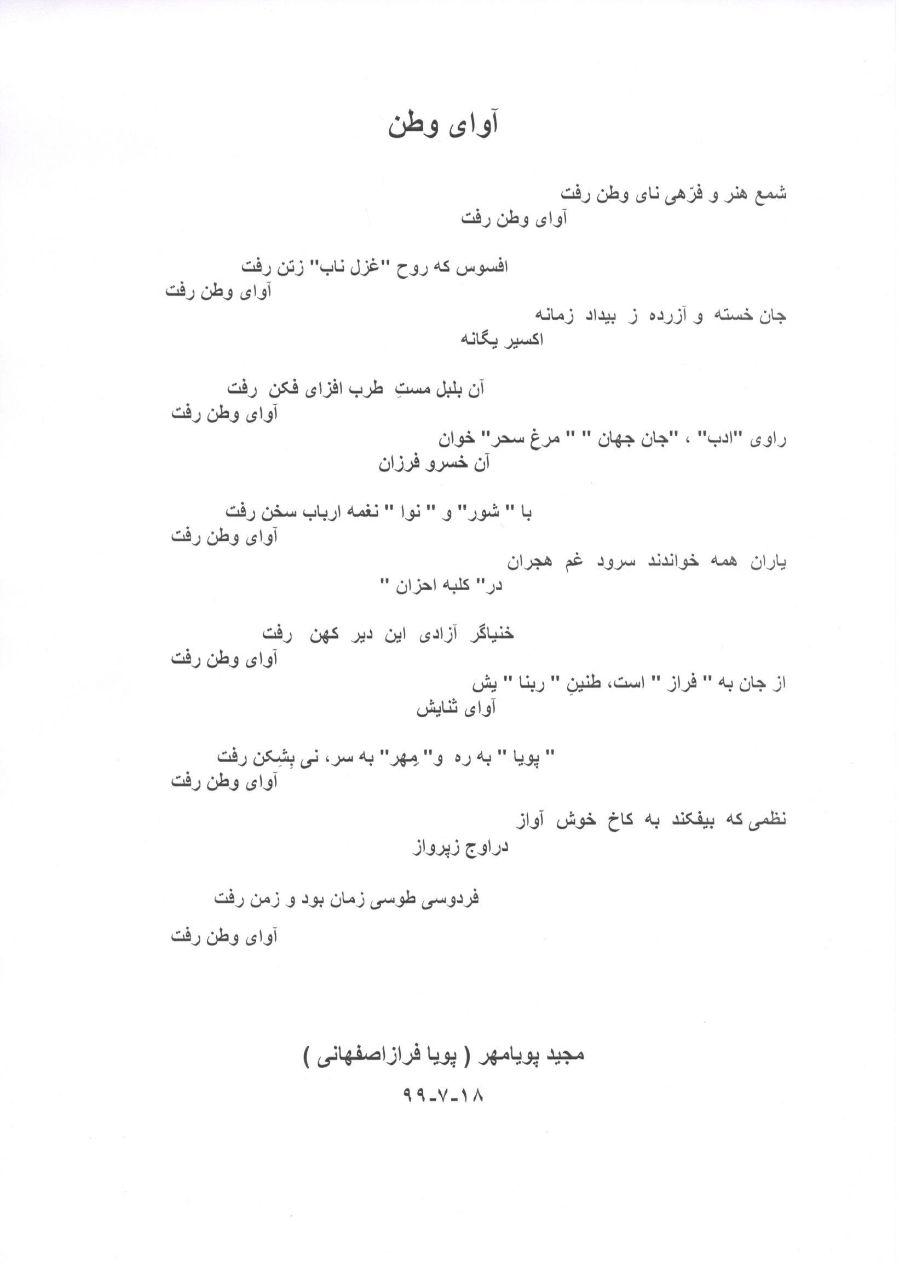 آوای وطن
شمع هنر و فرّهی نای وطن رفت
آوای وطن رفت
افسوس که روح "غزل ناب" زتن رفت
آوای وطن رفت
جان خسته و آزرده ز بیداد زمانه
اکسیر یگانه
آن بلبل مستِ طرب افزای فکن رفت
آوای وطن رفت
راوی "ادب" ، "جان جهان " " مرغ سحر" خوان
آن خسرو فرزان
با " شور" و " نوا " نغمه ارباب سخن رفت
آوای وطن رفت
یاران همه خواندند سرود غم هجران
در" کلبه احزان "
خنیاگر آزادی این دیر کهن رفت
آوای وطن رفت
از جان به " فراز " است، طنینِ " ربنا " یش
آوای ثنایش
" پویا " به ره و" مِهر" به سر، نی بِشِکن رفت
آوای وطن رفت
نظمی که بیفکند به کاخ خوش آواز
دراوج زپرواز
فردوسی طوسی زمان بود و زمن رفت
آوای وطن رفت
مجید پویامهر ( پویا فرازاصفهانی )
۹۹-۷-۱۸